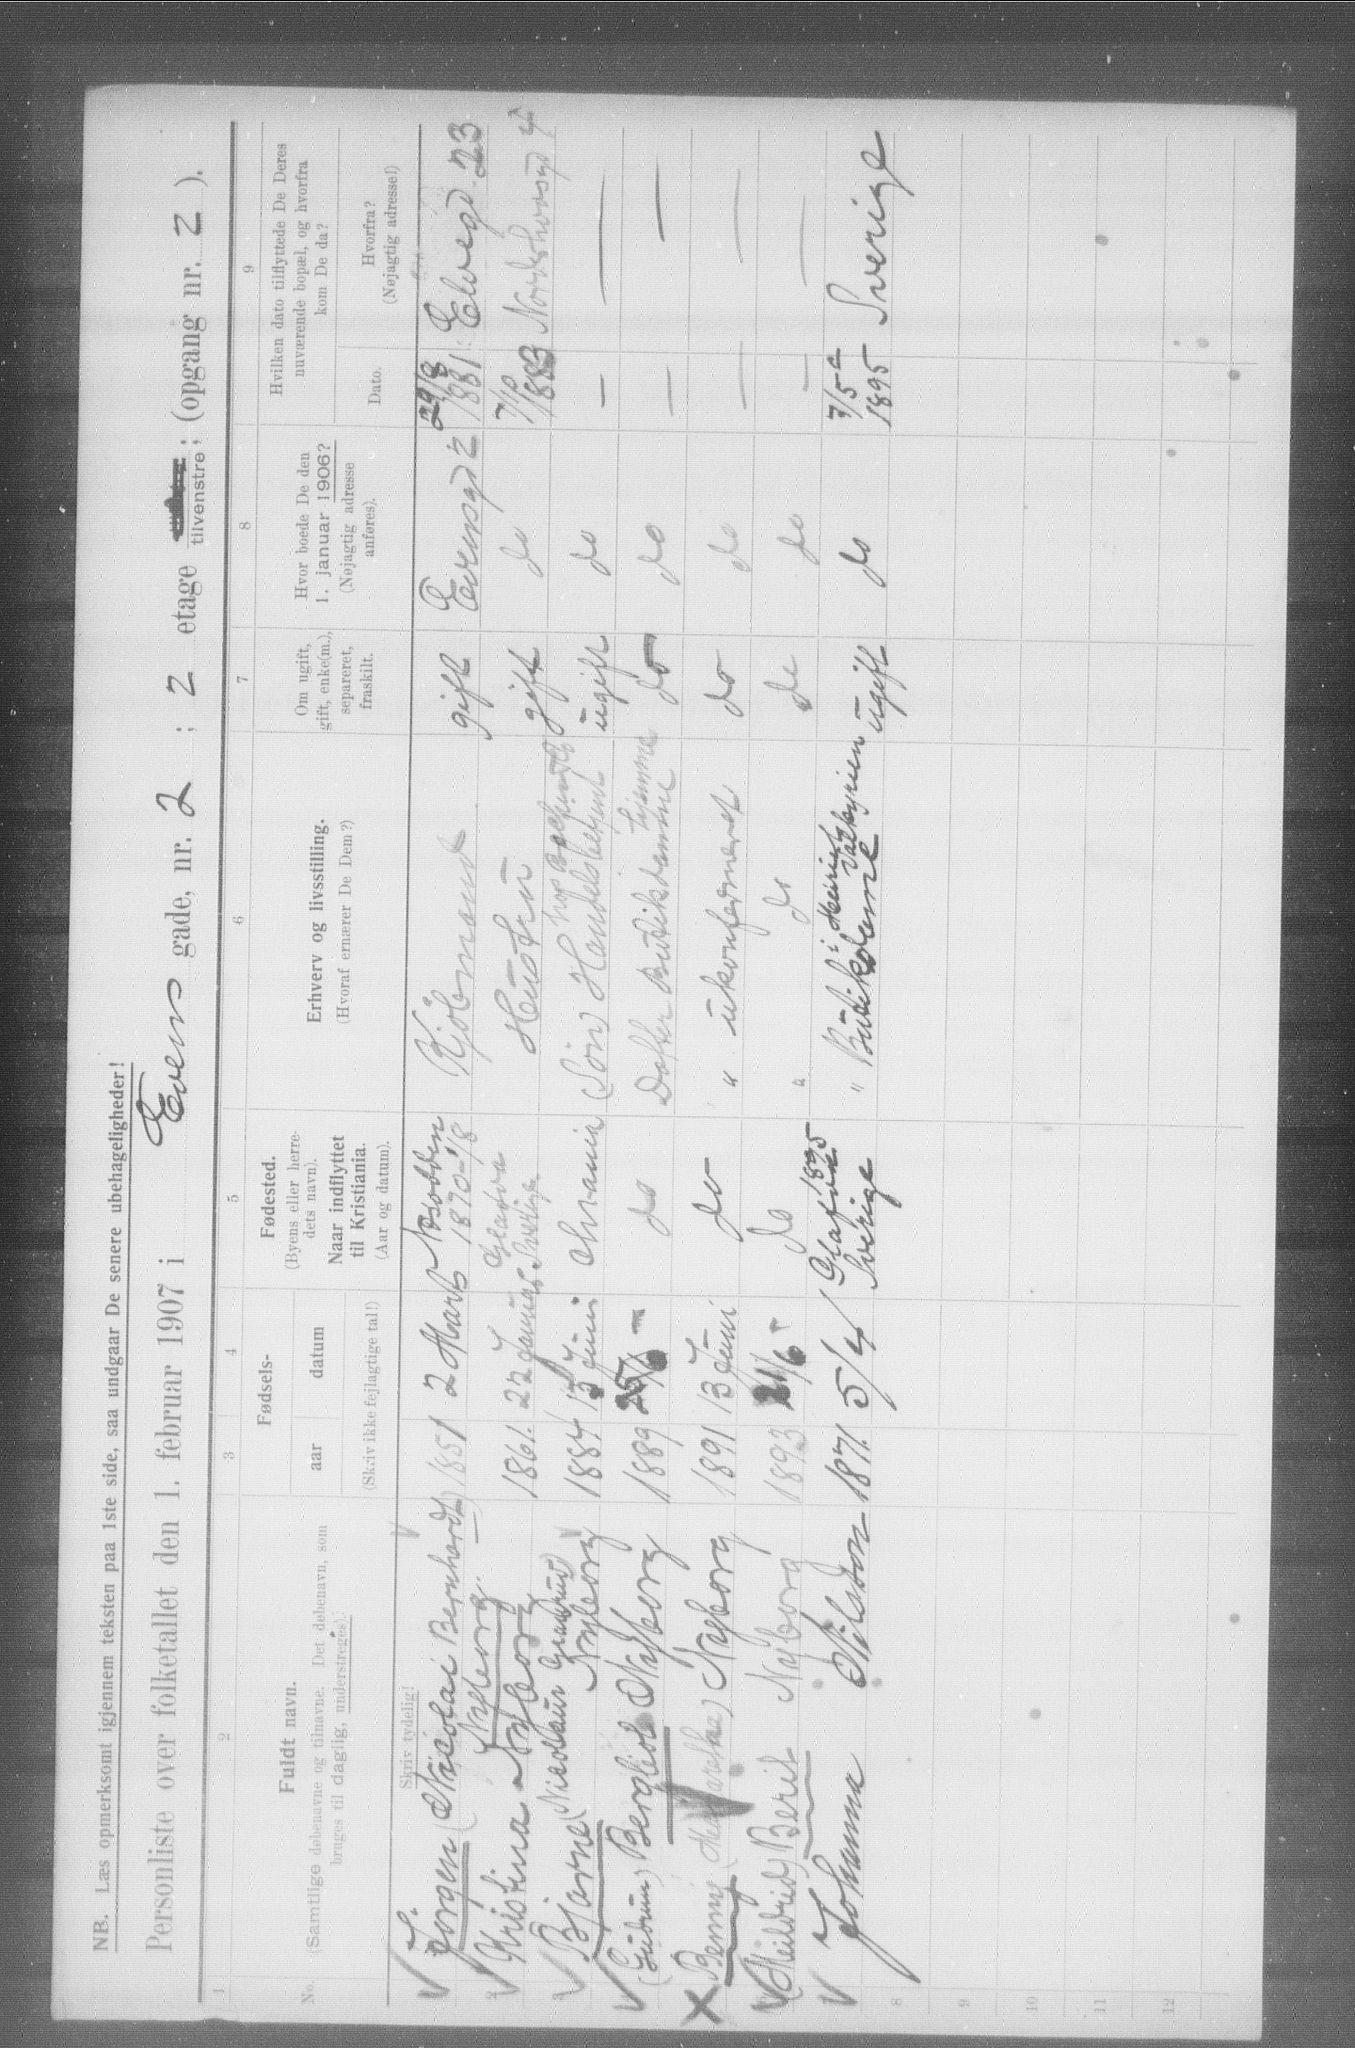 NB. Læs opmerksomt igjennem teksten paa 1ste side, saa undgaar De senere ubehageligheder!
Personliste over folketallet den 1. februar 1907 i Evens gade, nr. 2 ; 2 etage tilvenstre; (opgang nr. 2 ).
1 2 3 4 5 6 7 8 9
No.
Fuldt navn.
(Samtlige døbenavne og tilnavne. Det døbenavn, som
bruges til daglig, understreges).
Skriv tydelig!
Fødsels-
aar datum
(Skriv ikke fejlagtige tal!)
Fødested.
(Byens eller herre-
dets navn).
Naar indflyttet
til Kristiania.
(Aar og datum).
Erhverv og livsstilling.
(Hvoraf ernærer De Dem?)
Om ugift,
gift, enke(m.),
separeret,
fraskilt.
Hvor boede De den
1. januar 1906?
(Nøjagtig adresse
anføres).
Hvilken dato tilflyttede De Deres
nuværende bopæl, og hvorfra
kom De da?
Dato.
Hvorfra?
(Nøjagtig adresse!)
Jørgen (Nicolai Bernhardt) 1851 2 Marts Næsodden Kjøbmand gift Evensgd 2 29/8 Elvegd. 23
Nyborg. 1870-18 1881
2 Kristina Nyborg 1861. 22 Januar Sverige Hustru gift do 1883
3 Bjarne (Nicolaus 1884 13 Juni Chrania (Søn) Handelsbetjent ugift do — —
Nyborg
(Gudrun) Bergliot Nyborg 1889 — do Datter Butikdamme hjemme do do — —
Benny Nyborg 1891 13 Juni do " ukonfermert do do — —
Berit Nyborg 1893 do " do do do — —
Johanna Nilsson 1871. 5/4 1895 " Butikdame ugift do 7/5 Sverige
Sverige 1895
8
9
10
11
12